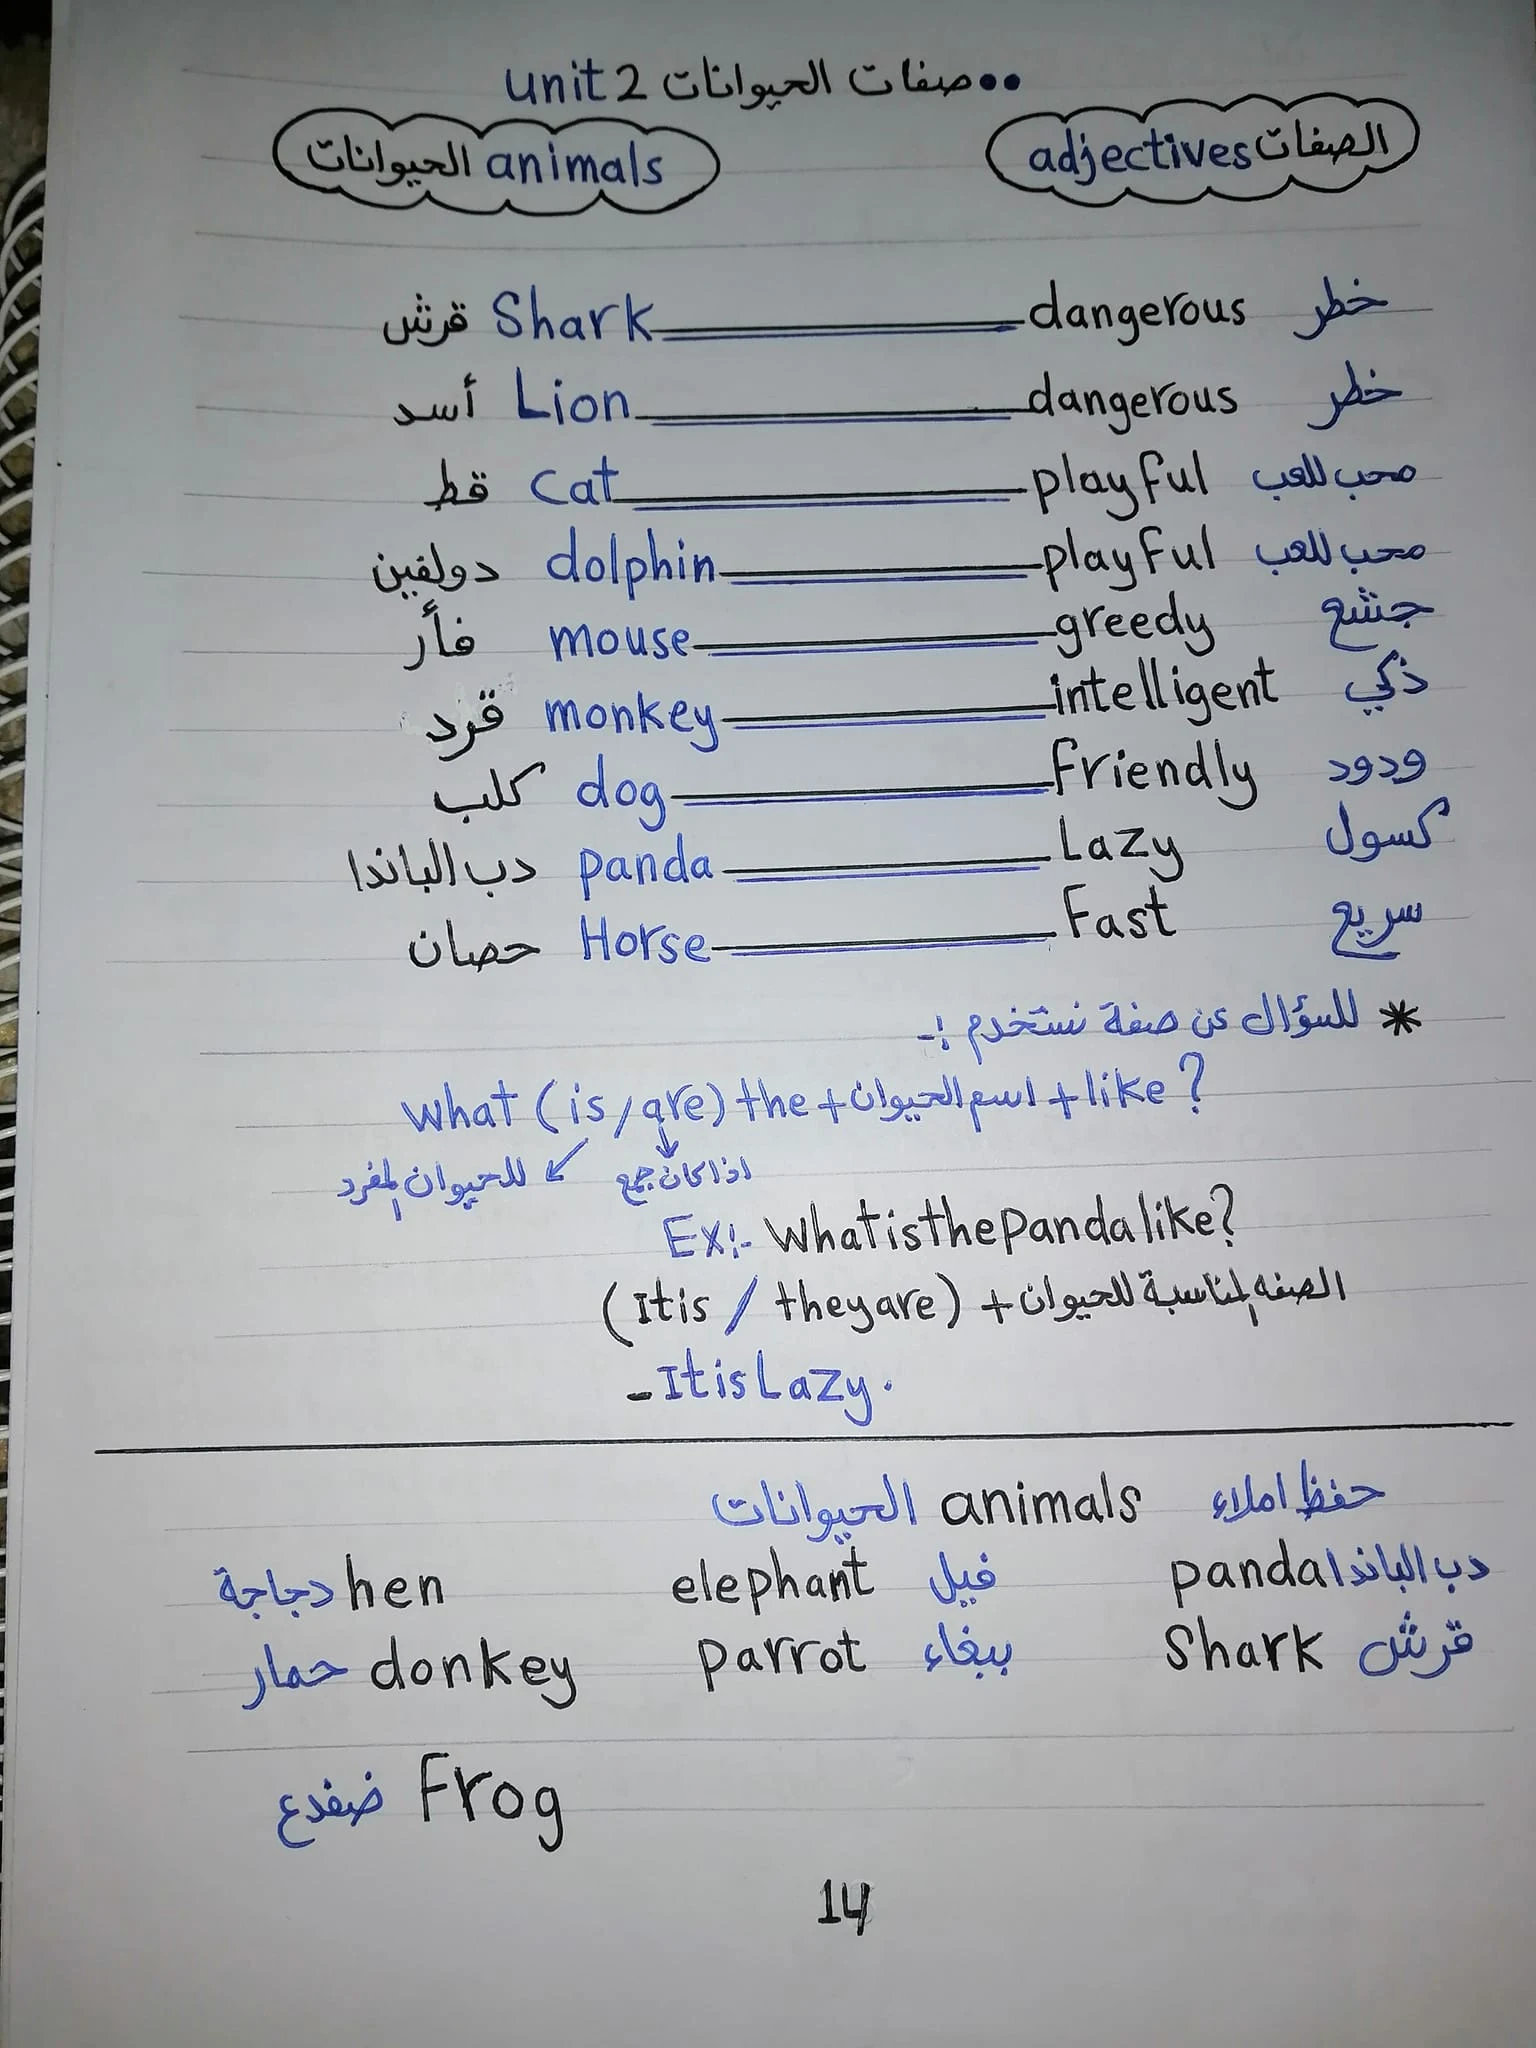 ••صفات الحيوانات unit 2
الحيوانات animals    adjectives الصفات
قرش Shark dangerous خطر
أسد Lion dangerous خطر
قط cat playful محب للعب
دولفين dolphin playful محب للعب
فأر mouse greedy جشع
قرد monkey intelligent ذكي
كلب dog friendly ودود
دب الباندا panda Lazy كسول
حصان Horse Fast سريع
* للسؤال عن صفة نستخدم :-
what (is / are) the + اسم الحيوان + like ?
للحيوان المفرد    اذا كان جمع
EX:- What is the panda like?
(It is / they are) + الصفه المناسبة للحيوان
- It is Lazy.
حفظ املاء animals الحيوانات
دجاجة hen    elephant فيل    panda دب الباندا
حمار donkey    parrot ببغاء    Shark قرش
ضفدع Frog
14